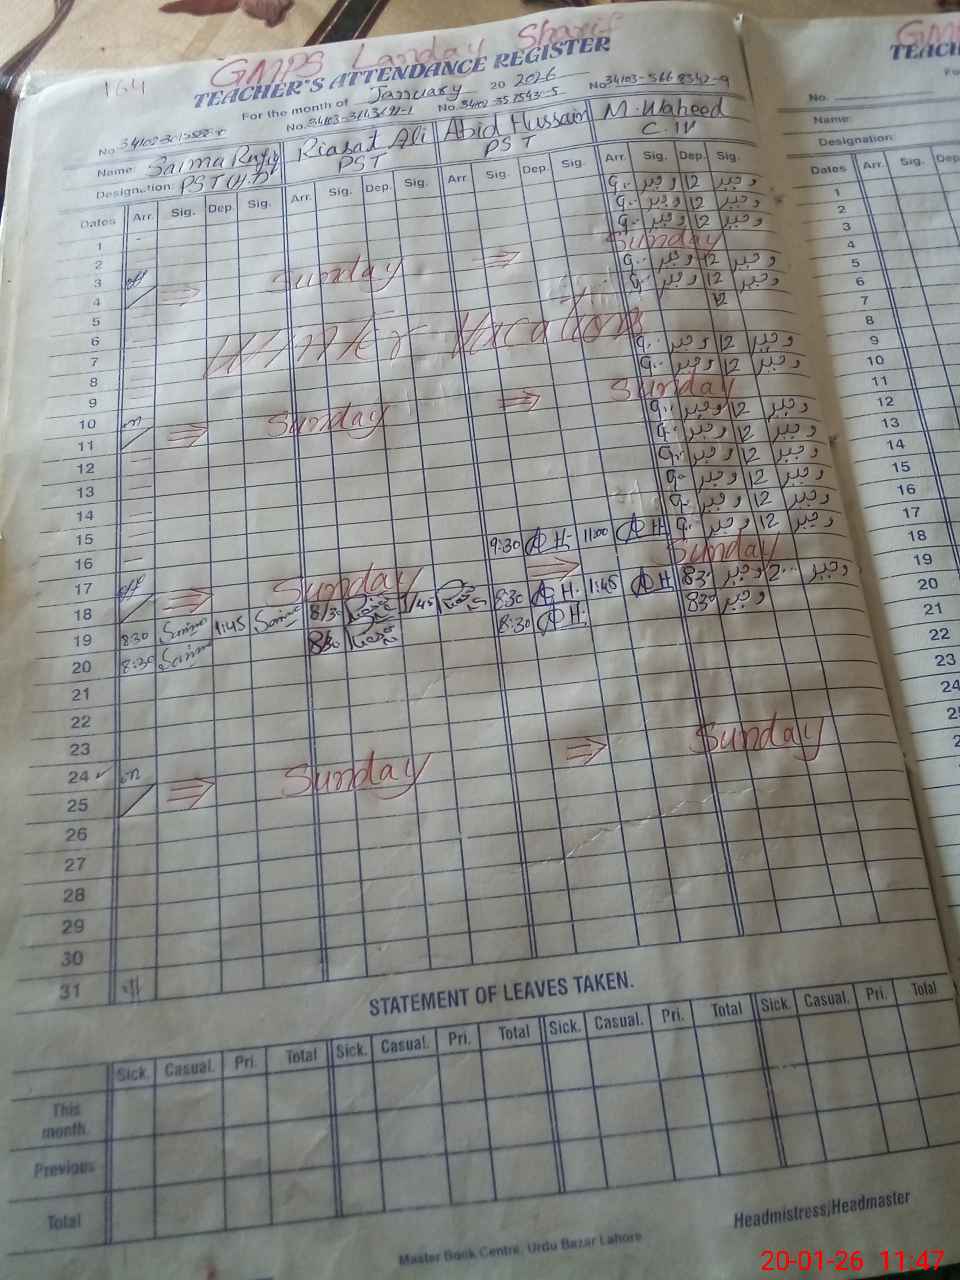 GMPS Landay Sharif
164
TEACHER'S ATTENDANCE REGISTER
For the month of January 20 2026
No. No. No. No.
Name: Saima Riasat Ali Abid Hussain M. Waheed
Designation: PST PST PST C. IV
Dates Arr. Sig. Dep. Sig. Arr. Sig. Dep. Sig. Arr. Sig. Dep. Sig. Arr. Sig. Dep. Sig.
1 9.. وحید 12 وحید
2 9.. وحید 12 وحید
3 off 9.. وحید 12 وحید
4 ⇒ Sunday ⇒ Sunday
5 9.. وحید 12 وحید
6 9.. وحید 12 وحید
7 12
Winter Vacations
8
9 9.. وحید 12 وحید
10 on 9.. وحید 12 وحید
11 ⇒ Sunday ⇒ Sunday
12 9.. وحید 12 وحید
13 9.. وحید 12 وحید
14 9.. وحید 12 وحید
15 9.. وحید 12 وحید
16 9.. وحید 12 وحید
17 off 9:30 AH 11:00 AH 9.. وحید 12 وحید
18 ⇒ Sunday ⇒ Sunday
19 8:30 Saima 1:45 Saima 8/30 1/45 8:30 AH 1:45 AH 830 وحید 2.. وحید
20 8:30 Saima 8/30 8:30 AH 830 وحید
21
22
23
24 on
25 ⇒ Sunday ⇒ Sunday
26
27
28
29
30
31 off
STATEMENT OF LEAVES TAKEN.
Sick. Casual. Pri. Total Sick. Casual. Pri. Total Sick. Casual. Pri. Total Sick. Casual. Pri. Total
This month.
Previous
Total
Headmistress/Headmaster
Master Book Centre, Urdu Bazar Lahore
GM
TEACH
No.
Name:
Designation:
Dates Arr. Sig. Dep
1
2
3
4
5
6
7
8
9
10
11
12
13
14
15
16
17
18
19
20
21
22
23
24
20-01-26 11:47